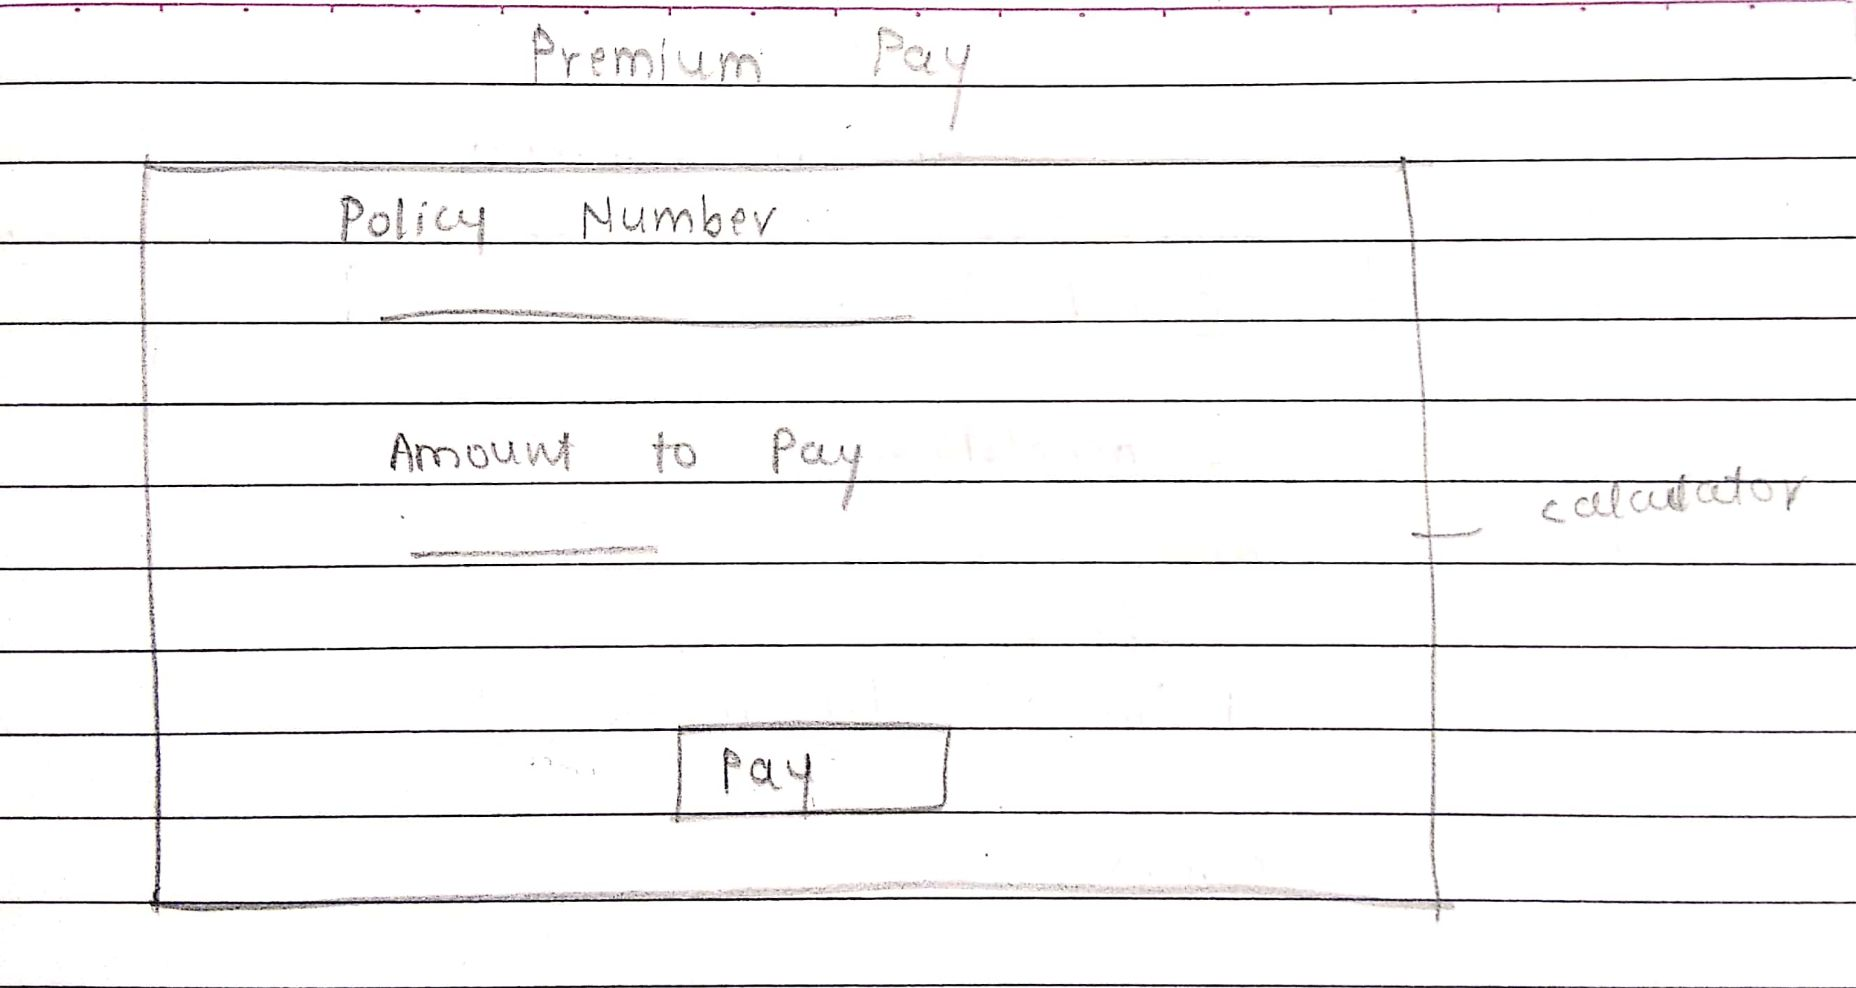 Premium Pay
Policy Number
Amount to Pay
calculator
Pay